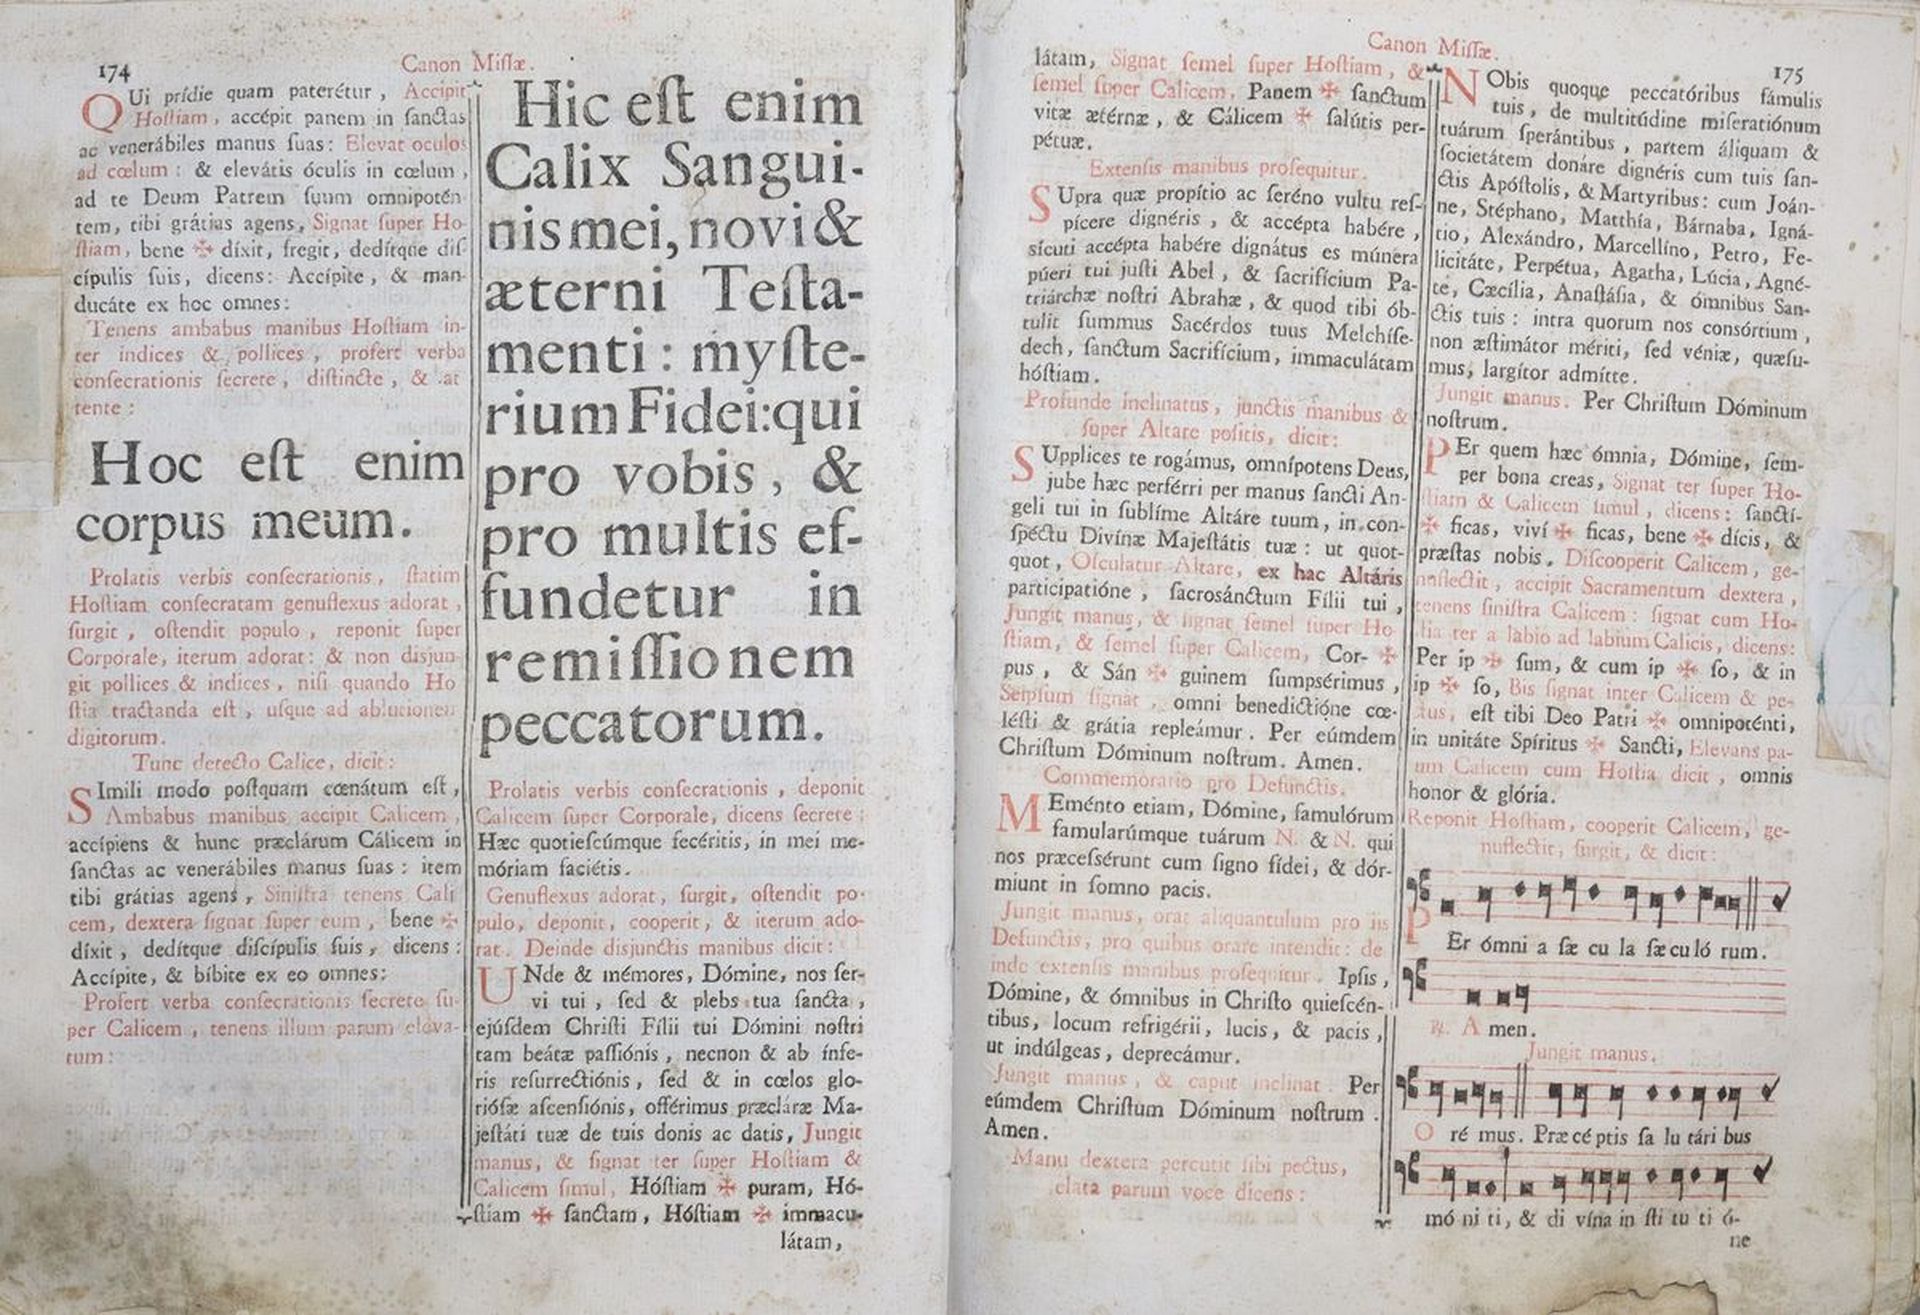 174
Canon Miſſæ.
QUi prídie quam paterétur, Accipit
Hoſtiam, accépit panem in ſanctas
ac venerábiles manus ſuas: Elevat oculos
ad cœlum: & elevátis óculis in cœlum,
ad te Deum Patrem ſuum omnipotén
tem, tibi grátias agens, Signat ſuper Ho-
ſtiam, bene ✠ díxit, fregit, dedítque diſ-
cípulis ſuis, dicens: Accípite, & man-
ducáte ex hoc omnes:
Tenens ambabus manibus Hoſtiam in-
ter indices & pollices, profert verba
conſecrationis ſecrete, diſtincte, & at
tente:
Hoc eſt enim
corpus meum.
Prolatis verbis conſecrationis, ſtatim
Hoſtiam conſecratam genuflexus adorat,
ſurgit, oſtendit populo, reponit ſuper
Corporale, iterum adorat: & non disjun-
git pollices & indices, niſi quando Ho
ſtia tractanda eſt, uſque ad ablutionem
digitorum.
Tunc detecto Calice, dicit:
SImili modo poſtquam cœnátum eſt,
Ambabus manibus accipit Calicem,
accípiens & hunc præclárum Cálicem in
ſanctas ac venerábiles manus ſuas: item
tibi grátias agens, Siniſtra tenens Cali
cem, dextera ſignat ſuper eum, bene ✠
díxit, dedítque diſcípulis ſuis, dicens:
Accípite, & bíbite ex eo omnes:
Profert verba conſecrationis ſecrete ſu-
per Calicem, tenens illum parum eleva-
tum:
Hic eſt enim
Calix Sangui-
nis mei, novi &
æterni Teſta-
menti: myſte-
rium Fidei: qui
pro vobis, &
pro multis ef-
fundetur in
remiſſionem
peccatorum.
Prolatis verbis conſecrationis, deponit
Calicem ſuper Corporale, dicens ſecrete:
Hæc quotieſcúmque fecéritis, in mei me-
móriam faciétis.
Genuflexus adorat, ſurgit, oſtendit po-
pulo, deponit, cooperit, & iterum ado-
rat. Deinde disjunctis manibus dicit:
UNde & mémores, Dómine, nos ſer-
vi tui, ſed & plebs tua ſancta,
ejúſdem Chriſti Fílii tui Dómini noſtri
tam beátæ paſſiónis, necnon & ab ínfe-
ris reſurrectiónis, ſed & in cœlos glo-
rióſæ aſcenſiónis, offérimus præcláræ Ma-
jeſtáti tuæ de tuis donis ac datis, Jungit
manus, & ſignat ter ſuper Hoſtiam &
Calicem ſimul, Hóſtiam ✠ puram, Hó-
ſtiam ✠ ſanctam, Hóſtiam ✠ immacu-
látam,
Canon Miſſæ.
175
látam, Signat ſemel ſuper Hoſtiam, &
ſemel ſuper Calicem, Panem ✠ ſanctum
vitæ ætérnæ, & Cálicem ✠ ſalútis per-
pétuæ.
Extenſis manibus proſequitur.
SUpra quæ propítio ac ſeréno vultu reſ-
pícere dignéris, & accépta habére,
sícuti accépta habére dignátus es múnera
púeri tui juſti Abel, & ſacrifícium Pa-
triárchæ noſtri Abrahæ, & quod tibi ób-
tulit ſummus Sacérdos tuus Melchíſe-
dech, ſanctum Sacrifícium, immaculátam
hóſtiam.
Profunde inclinatus, junctis manibus &
ſuper Altare poſitis, dicit:
SUpplices te rogámus, omnípotens Deus,
jube hæc perférri per manus ſancti An-
geli tui in ſublíme Altáre tuum, in con-
ſpéctu Divínæ Majeſtátis tuæ: ut quot-
quot, Oſculatur Altare, ex hac Altáris
participatióne, ſacrosánctum Fílii tui,
Jungit manus, & ſignat ſemel ſuper Ho
ſtiam, & ſemel ſuper Calicem, Cor- ✠
pus, & Sán ✠ guinem ſumpsérimus,
Seipſum ſignat, omni benedictióne cœ-
léſti & grátia repleámur. Per eúmdem
Chriſtum Dóminum noſtrum. Amen.
Commemoratio pro Defunctis.
MEménto etiam, Dómine, famulórum
famularúmque tuárum N. & N. qui
nos præceſsérunt cum ſigno fídei, & dór-
miunt in ſomno pacis.
Jungit manus, orat aliquantulum pro iis
Defunctis, pro quibus orare intendit: de
inde extenſis manibus proſequitur. Ipſis,
Dómine, & ómnibus in Chriſto quieſcén-
tibus, locum refrigérii, lucis, & pacis,
ut indúlgeas, deprecámur.
Jungit manus, & caput inclinat. Per
eúmdem Chriſtum Dóminum noſtrum.
Amen.
Manu dextera percutit ſibi pectus,
elata parum voce dicens:
NObis quoque peccatóribus fámulis
tuis, de multitúdine miſeratiónum
tuárum ſperántibus, partem áliquam &
ſocietátem donáre dignéris cum tuis ſan-
ctis Apóſtolis, & Martyribus: cum Joán-
ne, Stéphano, Matthía, Bárnaba, Igná-
tio, Alexándro, Marcellíno, Petro, Fe-
licitáte, Perpétua, Agatha, Lúcia, Agné-
te, Cæcília, Anaſtáſia, & ómnibus San-
ctis tuis: intra quorum nos consórtium,
non æſtimátor mériti, ſed véniæ, quæſu-
mus, largítor admítte.
Jungit manus. Per Chriſtum Dóminum
noſtrum.
PEr quem hæc ómnia, Dómine, ſem-
per bona creas, Signat ter ſuper Ho-
ſtiam & Calicem ſimul, dicens: ſanctí-
✠ ficas, viví ✠ ficas, bene ✠ dícis, &
præſtas nobis. Diſcooperit Calicem, ge-
nuflectit, accipit Sacramentum dextera,
tenens ſiniſtra Calicem: ſignat cum Ho-
ſtia ter a labio ad labium Calicis, dicens:
Per ip ✠ ſum, & cum ip ✠ ſo, & in
ip ✠ ſo, Bis ſignat inter Calicem & pe-
ctus, eſt tibi Deo Patri ✠ omnipoténti,
in unitáte Spíritus ✠ Sancti, Elevans pa-
rum Calicem cum Hoſtia dicit, omnis
honor & glória.
Reponit Hoſtiam, cooperit Calicem, ge-
nuflectit, ſurgit, & dicit:
PEr ómni a ſæ cu la ſæ cu ló rum.
℟. A men.
Jungit manus.
O ré mus. Præ cé ptis ſa lu tári bus
mó ni ti, & di vína in ſti tu ti ó-
ne